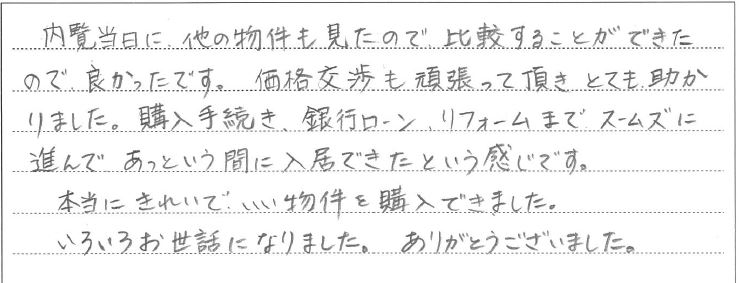 内覧当日に、他の物件も見たので、比較することができた
ので良かったです。価格交渉も頑張って頂きとても助か
りました。購入手続き、銀行ローン、リフォームまでスームズに
進んであっという間に入居できたという感じです。
本当にきれいで、いい物件を購入できました。
いろいろお世話になりました。ありがとうございました。